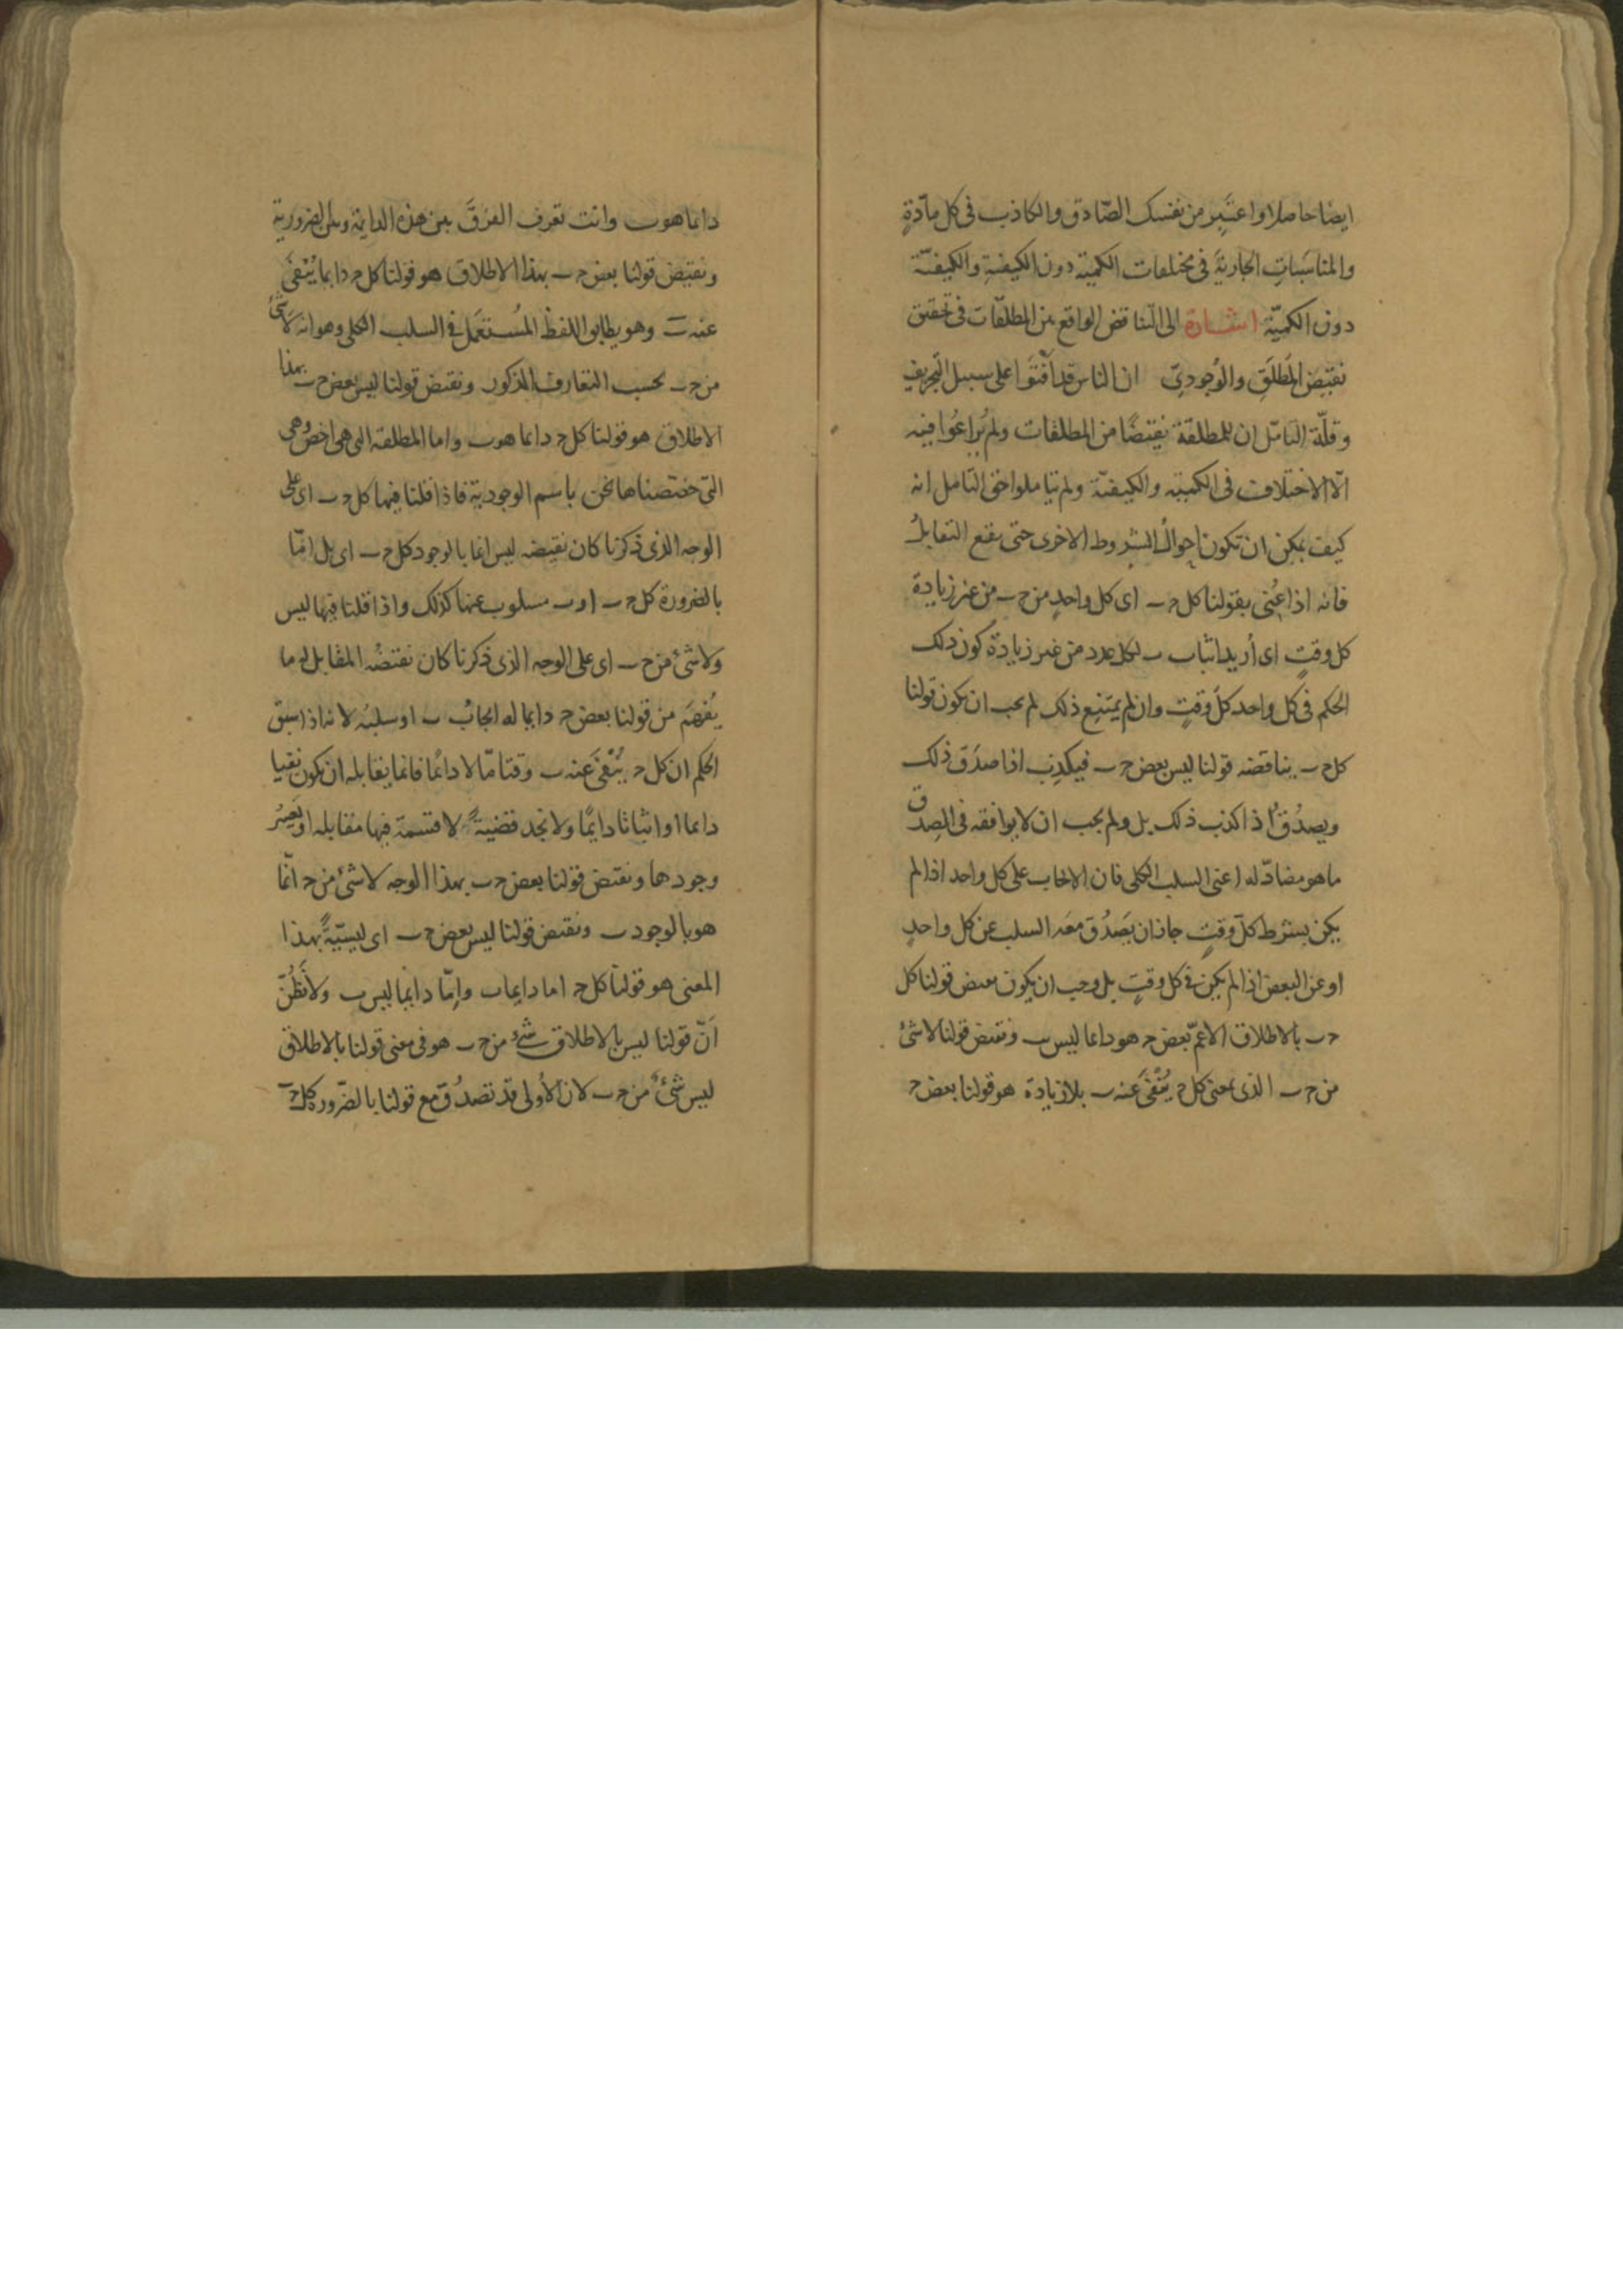 ايضا حاصلا واعتبر من نفسك الصّادق والكاذب فى كل مادّةٍ
والمناسَباتِ الجاريَةَ فى مختلفات الكميّة دون الكيفيةِ والكيفيّة
دون الكميّة اشارة الى التناقض الواقع بين المطلقات فى تحقيق
نقيضِ المطلَقِ والوُجودىّ ان الناس قد أفتَوا على سبيل التحريفِ
وقلّة التامّل ان للمطلقة نقيضًا من المطلقات ولم يُراعُوا فيه
الّا الاختلاف فى الكميّة والكيفيّة ولم يتاملوا حق التامل انه
كيف يمكن ان تكون احوالُ الشروط الاخرى حتى يقع التقابلُ
فانه اذا عُنى بقولنا كل ج ب اى كل واحدٍ من ج ب من غير زيادة
كل وقتٍ اى أريد اثبات ب لكل عدد من غير زيادة كون ذلك
الحكم فى كل واحد كلَّ وقتٍ وان لم يمتنع ذلك لم يجب ان يكون قولنا
كل ج ب يناقضه قولنا ليس بعض ج ب فيكذب اذا صدَق ذلك
ويصدُق اذا كذب ذلك بل ولم يجب ان لا يوافقه فى الصِدق
ما هو مضادّ له اعنى السلب الكلى فان الايجاب على كل واحد اذا لم
يكن بشرط كلّ وقتٍ جاز ان يَصدُق معَه السلب عن كل واحدٍ
او عن البعض اذا لم يكن فى كل وقتٍ بل وجب ان يكون نقيض قولنا كل
ج ب بالاطلاق الاعمّ بعض ج هو دائما ليس ب ونقيض قولنا لا شئ
من ج ب الذى بمعنى كل ج يُنْفَى عنه ب بلا زيادة هو قولنا بعض ج
دائما هو ب وانت تعرف الفرقَ بين هذه الدايمة وبين الضرورية
ونقيض قولنا بعض ج ب بهذا الاطلاق هو قولنا كل ج دايما يُنْفَى
عنه ب وهو يطابق اللفظ المُستعمَل فى السلب الكلى وهو انه لا شئ
من ج ب بحسب التعارف المذكور ونقيض قولنا ليس بعض ج ب بهذا
الاطلاق هو قولنا كل ج دائما هو ب واما المطلقة التى هى اخصّ وهى
التى خصصناها نحن باسم الوجودية فاذا قلنا فيها كل ج ب اى على
الوجه الذى ذكرنا كان نقيضه ليس انما بالوجود كل ج ب اى بل امّا
بالضرورة كل ج ب او ب مسلوب عنها كذلك واذا قلنا فيها ليس
ولا شئ من ج ب اى على الوجه الذى ذكرنا كان نقيضُه المقابل له ما
يُفهَم من قولنا بعض ج دايما له ايجابُ ب او سلبُه لانه اذا سبق
الحكم ان كل ج يُنْفَى عنه ب وقتا مّا لا دائمًا فانما يقابله ان يكون نفيا
دائما او اثباتا دايمًا ولا نجد قضيةً لا قسمة فيها مقابله او يَعسُر
وجودها ونقيض قولنا بعض ج ب بهذا الوجه لا شئ من ج انّما
هو بالوجود ب ونقيض قولنا ليس بعض ج ب اى ليسيّةً بهذا
المعنى هو قولنا كل ج اما دايما ب وإمّا دائما ليس ب ولا تَظُنّ
أنّ قولنا ليس بالاطلاق شئ من ج ب هو فى معنى قولنا بالاطلاق
ليس شئ من ج ب لان الأولى قد تصدُق مع قولنا بالضّرورة كل ج ب